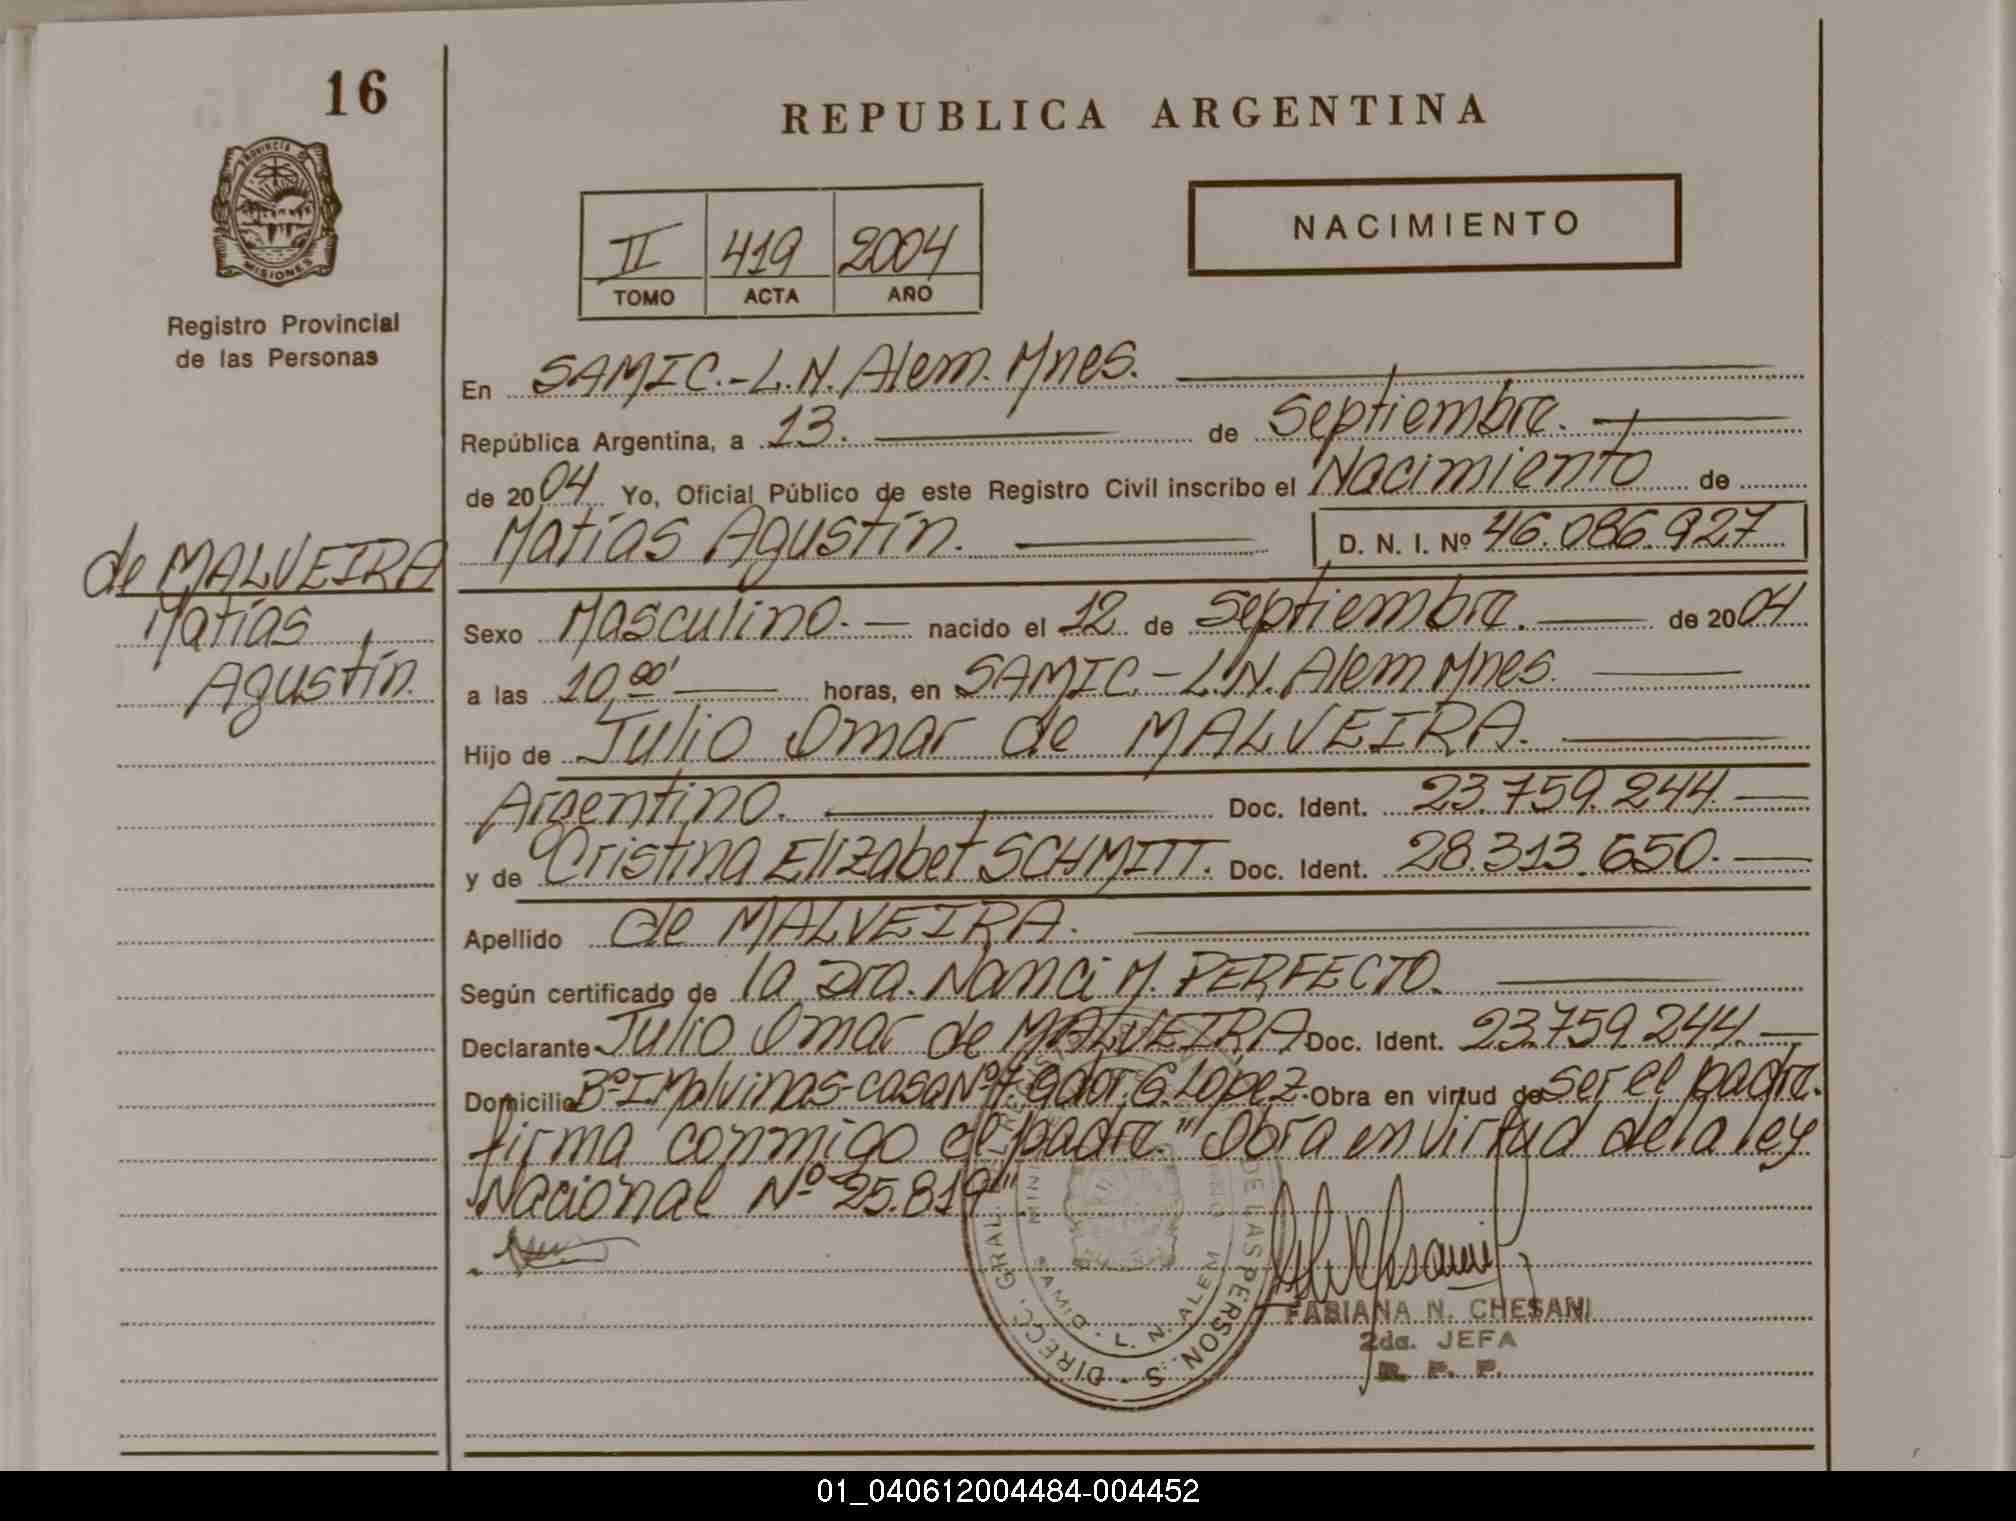 16
PROVINCIA DE
MISIONES
Registro Provincial
de las Personas
de MALVEIRA
Matías
Agustín.
REPUBLICA ARGENTINA
II 419 2004
TOMO ACTA AÑO
NACIMIENTO
En SAMIC.-L.N. Alem. Mnes.
República Argentina, a 13. de Septiembre.
de 2004 Yo, Oficial Público de este Registro Civil inscribo el Nacimiento de
Matías Agustín. D. N. I. Nº 46.086.927
Sexo Masculino. nacido el 12 de Septiembre. de 2004
a las 10,00' horas, en SAMIC.-L.N. Alem Mnes.
Hijo de Julio Omar de MALVEIRA.
Argentino. Doc. Ident. 23.759.244
y de Cristina Elizabet SCHMITT. Doc. Ident. 28.313.650.
Apellido de MALVEIRA.
Según certificado de la Dra. Nanci M. PERFECTO.
Declarante Julio Omar de MALVEIRA Doc. Ident. 23.759.244.
Domicilio Bº I. Malvinas-casa Nº 7. Gdor. G. López. Obra en virtud de ser el padre.
firma conmigo el padre." Obra en virtud de la ley
Nacional Nº 25.819"
DIRECC. GRAL. DE LAS PERSONAS
SAMIC. L. N. ALEM
FABIANA N. CHESANI
2da. JEFA
R. P. P.
01_040612004484-004452